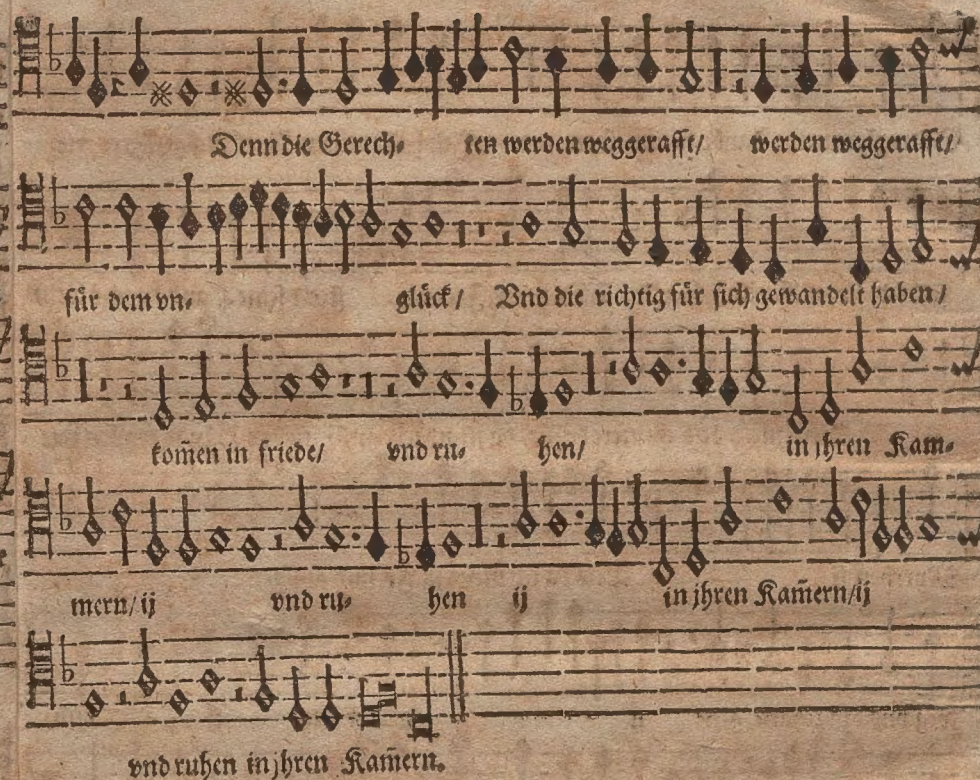 Denn die Gerech⸗ ten werden weggerafft/ werden weggerafft/
für dem vn⸗ glück/ Vnd die richtig für sich gewandelt haben/
kom̃en in friede/ vnd ru⸗ hen/ in jhren Kam⸗
mern/ ij vnd ru⸗ hen ij in jhren Kam̃ern/ ij
vnd ruhen in jhren Kam̃ern.